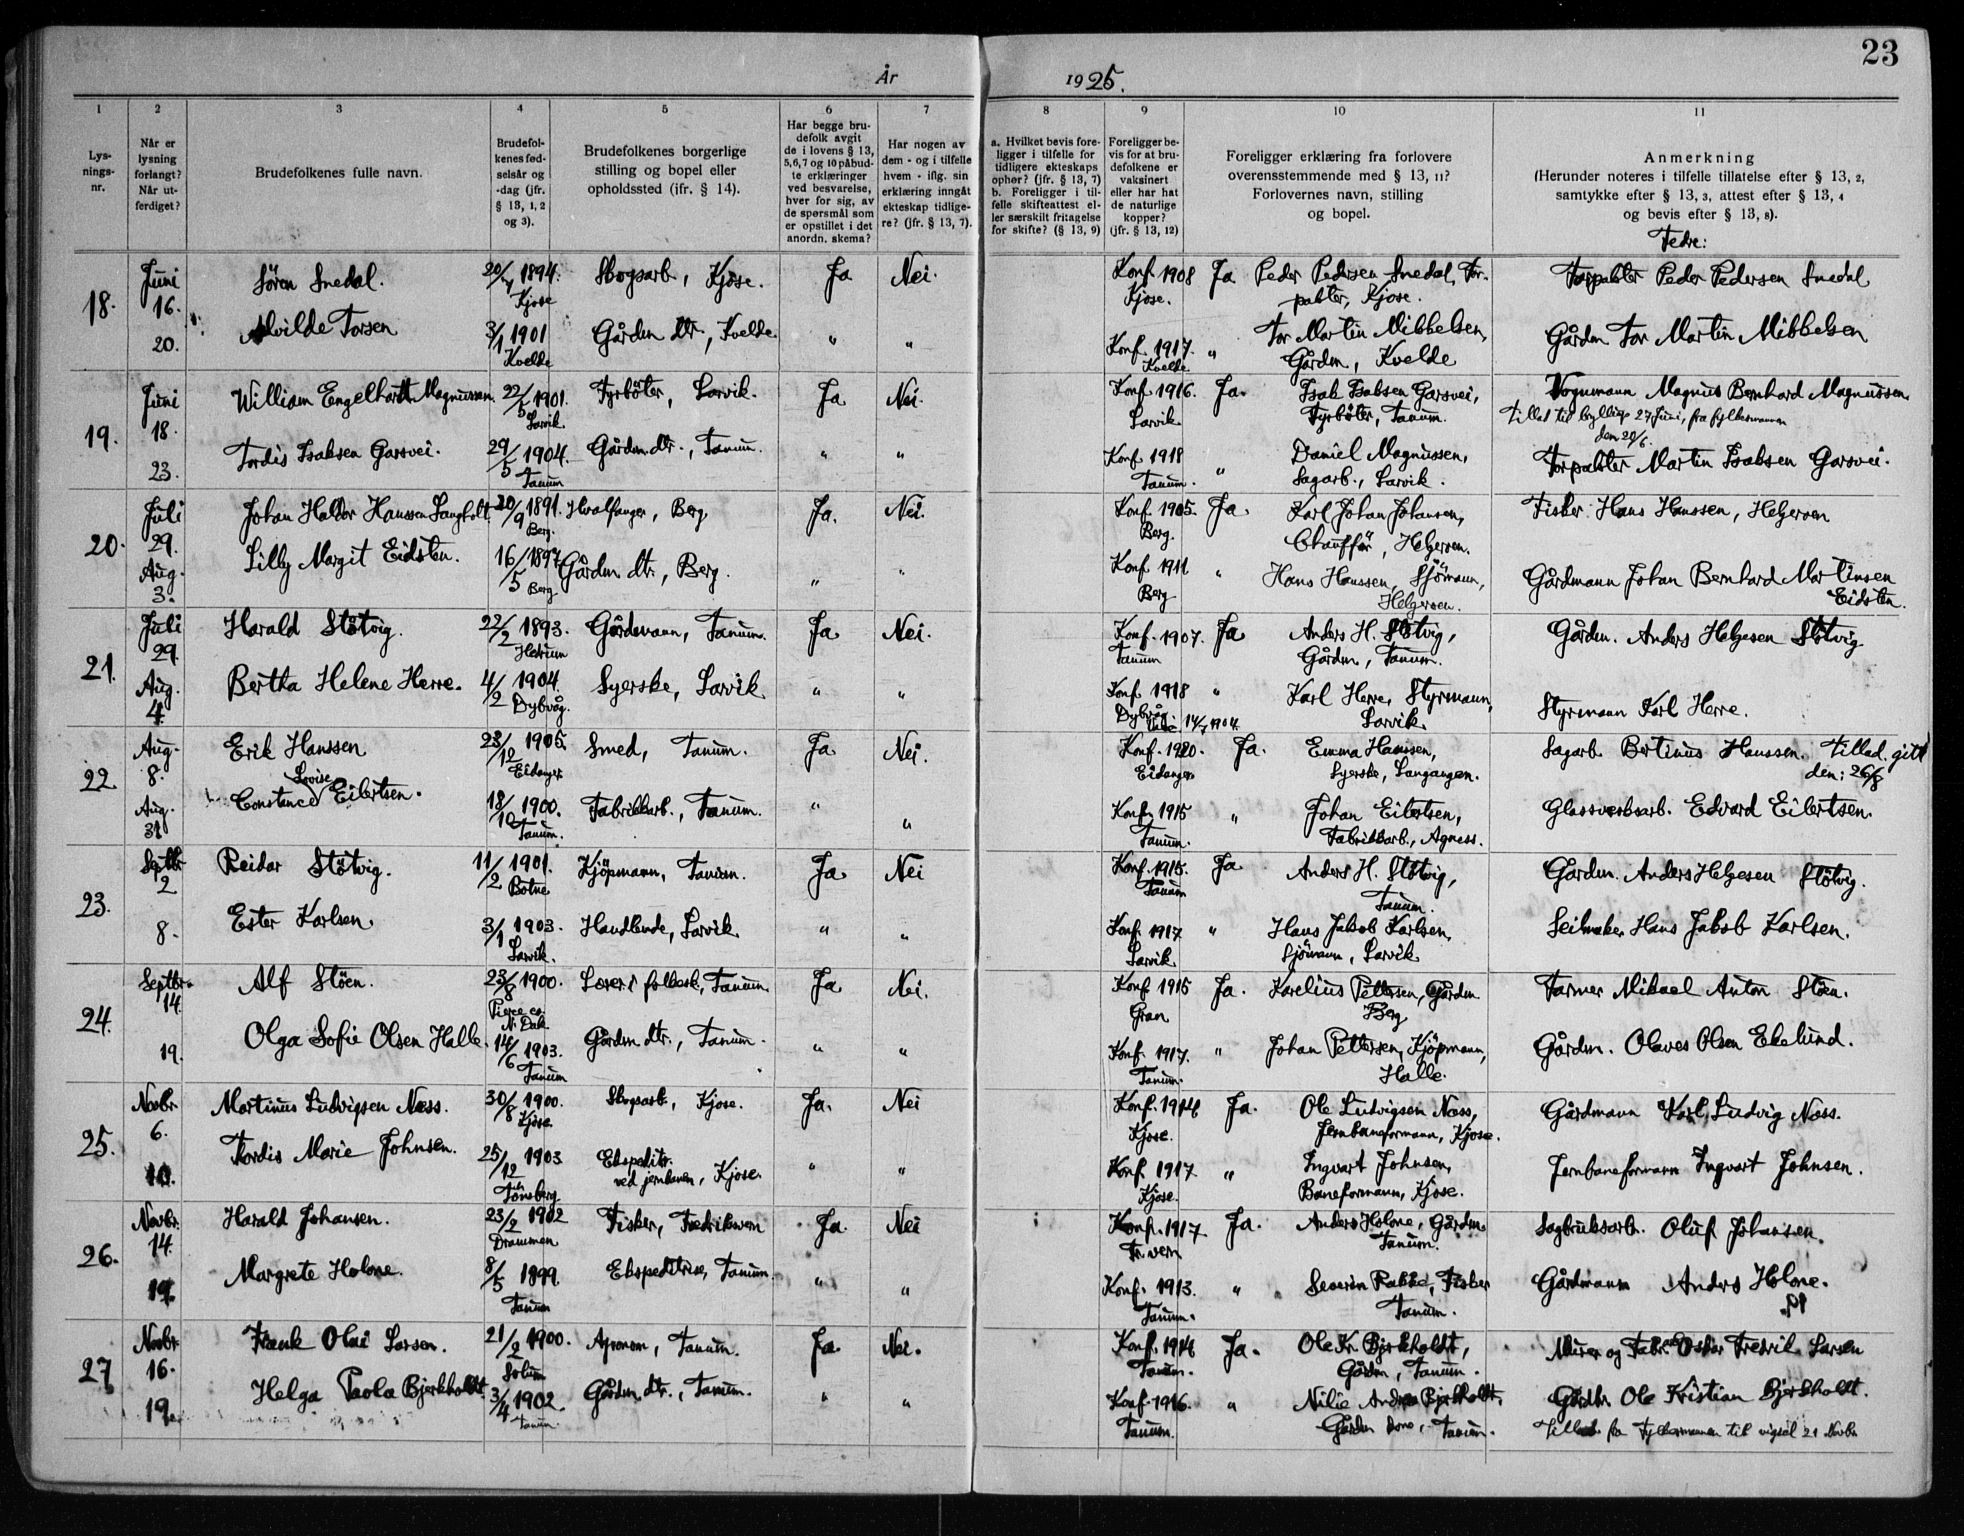 23
År 1925.
1 2 3 4 5 6 7 8 9 10 11
Lys-
nings-
nr.
Når er
lysning
forlangt?
Når ut-
ferdiget?
Brudefolkenes fulle navn.
Brudefol-
kenes fød-
selsår og
-dag (jfr.
§ 13, 1, 2
og 3).
Brudefolkenes borgerlige
stilling og bopel eller
opholdssted (ifr. § 14).
Har begge bru-
defolk avgit
de i lovens § 13,
5,6,7 og 10 påbud-
te erklæringer
ved besvarelse,
hver for sig, av
de spørsmål som
er opstillet i det
anordn. skema?
Har nogen av
dem - og i tilfelle
hvem - iflg. sin
erklæring inngått
ekteskap tidlige-
re? (jfr. § 13, 7).
a. Hvilket bevis fore-
ligger i tilfelle for
tidligere ekteskaps
ophør? (jfr. § 13, 7)
b. Foreligger i til-
felle skifteattest el-
ler særskilt fritagelse
for skifte? (§ 13, 9)
Foreligger be-
vis for at bru-
defolkene er
vaksinert
eller har hat
de naturlige
kopper?
(jfr. § 13, 12)
Foreligger erklæring fra forlovere
overensstemmende med § 13, 11?
Forlovernes navn, stilling
og bopel.
Anmerkning
(Herunder noteres i tilfelle tillatelse efter § 13, 2,
samtykke efter § 13, 3, attest efter § 13, 4
og bevis efter § 13, 8).
Fedre:
18. Juni 16. Sören Snedal. 1894. Kjose Skogsarb., Kjose. Ja Nei. Konf. 1908 Kjose. Ja Peder Pedersen Snedal, For-
pakter, Kjose. Forpakter Peder Pedersen Snedal
20. Alvilde Torsen 3/1 1901 Kvelde Gårdm. dtr., Kvelde " " Konf. 1917. Kvelde " Tor Martin Mikkelsen,
Gårdm, Kvelde Gårdm Tor Martin Mikkelsen
19. Juni 18. William Engelhardt Magnussen. 22/5 1901. Larvik Fyrböter, Larvik. Ja Nei. Konf. 1916. Larvik Ja. Isak Isaksen Garsvei,
Fyrböter, Tanum. Vognmann Magnus Bernhard Magnussen.
Tillat til bryllup 27 juni, fra fylkesmannen
den 20/6.
23. Tordis Isaksen Garsvei. 29/5 1904. Tanum Gårdm. dtr., Tanum. " " Konf 1918 Tanum. " Daniel Magnussen,
Sagarb., Larvik. Forpakter Martin Isaksen Garsvei.
20. Juli 29. Johan Haldor Hanssen Langholt 20/9 1891. Berg. Hvalfanger, Berg Ja. Nei. Konf. 1905. Berg. Ja. Karl Johan Johansen,
Chaufför, Helgeroen. Fisker Hans Hanssen, Helgeroen
Aug. 3. Lilly Margit Eidsten. 16/5 1897 Berg Gårdm. dtr., Berg. " " Konf 1911 Berg " Hans Hanssen, Sjömann,
Helgeroen. Gårdmann Johan Bernhard Martinsen
Eidsten.
21. Juli 29. Harald Stötvig. 22/2 1893. Hedrum Gårdmann, Tanum. Ja Nei. Konf. 1907. Tanum Ja Anders H. Stötvig,
Gårdm, Tanum. Gårdm. Anders Helgesen Stötvig
Aug. 4. Bertha Helene Herre. 4/2 1904. Dybvåg. Syerske, Larvik " " Konf. 1918 Dybvåg " Karl Herre, Styrmann,
Larvik Styrmann Karl Herre.
22 Aug. 8. Erik Hanssen 23/12 1905. Eidanger Smed, Tanum. Ja Nei. Konf. 1920. Eidanger Ja. Emma Hanssen,
Syerske, Langangen. Sagarb. Bertinus Hanssen. Tillad. gitt
den: 26/8
Aug. 31. Constance Lovise Eilertsen. 18/10 1900. Tanum. Fabrikkarb., Tanum. " " Konf. 1915 Tanum. " Johan Eilertsen,
Fabrikkarb., Agness. Glassverksarb. Edvard Eilertsen.
23. Septbr 2 Reidar Stötvig. 11/2 1901. Botne Kjöpmann, Tanum. Ja Nei Konf. 1915. Tanum Ja Anders H. Stötvig,
Tanum. Gårdm. Anders Helgesen Stötvig.
8. Ester Karlsen. 3/1 1903. Larvik. Handlende, Larvik " " Konf. 1917 Larvik " Hans Jakob Karlsen,
Sjömann, Larvik Seilmaker Hans Jakob Karlsen.
24. Septbr. 14. Alf Stöen. 23/8 1900. Pierce co. N. Dak Lærer i folkesk., Tanum. Ja Nei. Konf 1915 Gran Ja. Karelius Pettersen, Gårdm
Berg Farmer Mikael Anton Stöen.
19. Olga Sofie Olsen Halle. 14/6 1903. Tanum Gårdm. dtr., Tanum. " " Konf. 1917. Tanum. " Johan Pettersen, Kjöpmann,
Halle. Gårdm. Olaves Olsen Ekelund.
25. Novbr. 6. Martinus Ludvigsen Næss. 30/8 1900. Kjose Skogsarb., Kjose. Ja. Nei Konf. 1914 Kjose. Ja. Ole Ludvigsen Næss,
Jernbaneformann, Kjose. Gårdmann Karl Ludvig Næss.
10. Tordis Marie Johnsen. 25/12 1903 Tönsberg Ekspeditr.
ved jernbanen, Kjose. " " Konf. 1917 Kjose. " Ingvart Johnsen,
Baneformann, Kjose. Jernbaneformann Ingvart Johnsen.
26. Novbr. 14. Harald Johansen. 23/2 1902 Drammen Fisker, Fredriksvern Ja. Nei Konf. 1917 Fr.vern Ja. Anders Holone, Gårdm.
Tanum. Sagbruksarb. Oluf Johansen.
19. Margrete Holone. 8/5 1899. Tanum Ekspeditrise, Tanum. " " Konf. 1913. Tanum. " Severin Rakke, Fisker
Tanum. Gårdmann Anders Holone.
27 Novbr 16. Frank Olai Larsen. 21/2 1900. Solum Agronom, Tanum. Ja. Nei. Konf. 1914 Tanum. Ja. Ole Kr. Bjerkholdt,
Gårdm, Tanum. Murer og Fabr.arb Oskar Fredrik Larsen
19. Helga Paola Bjerkholdt 3/4 1902. Tanum Gårdm. dtr., Tanum. " " Konf. 1916. Tanum. " Nilie Andrea Bjerkholdt,
Gårdm kone, Tanum. Gårdbr. Ole Kristian Bjerkholdt.
Tillat. fra Fylkesmannen til vigsel 21 Novbr